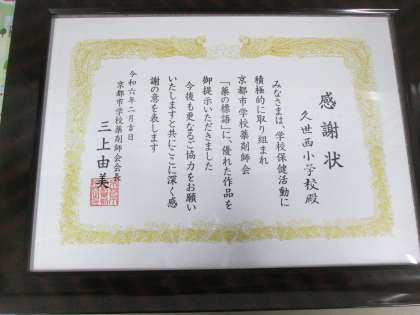 感謝状
久世西小学校殿
みなさまは、学校保健活動に
積極的に取り組まれ
京都市学校薬剤師会
「薬の標語」に、優れた作品を
御提示いただきました
今後も更なるご協力をお願い
いたしますと共にここに深く感
謝の意を表します
令和六年二月吉日
京都市学校薬剤師会会長
三上由美